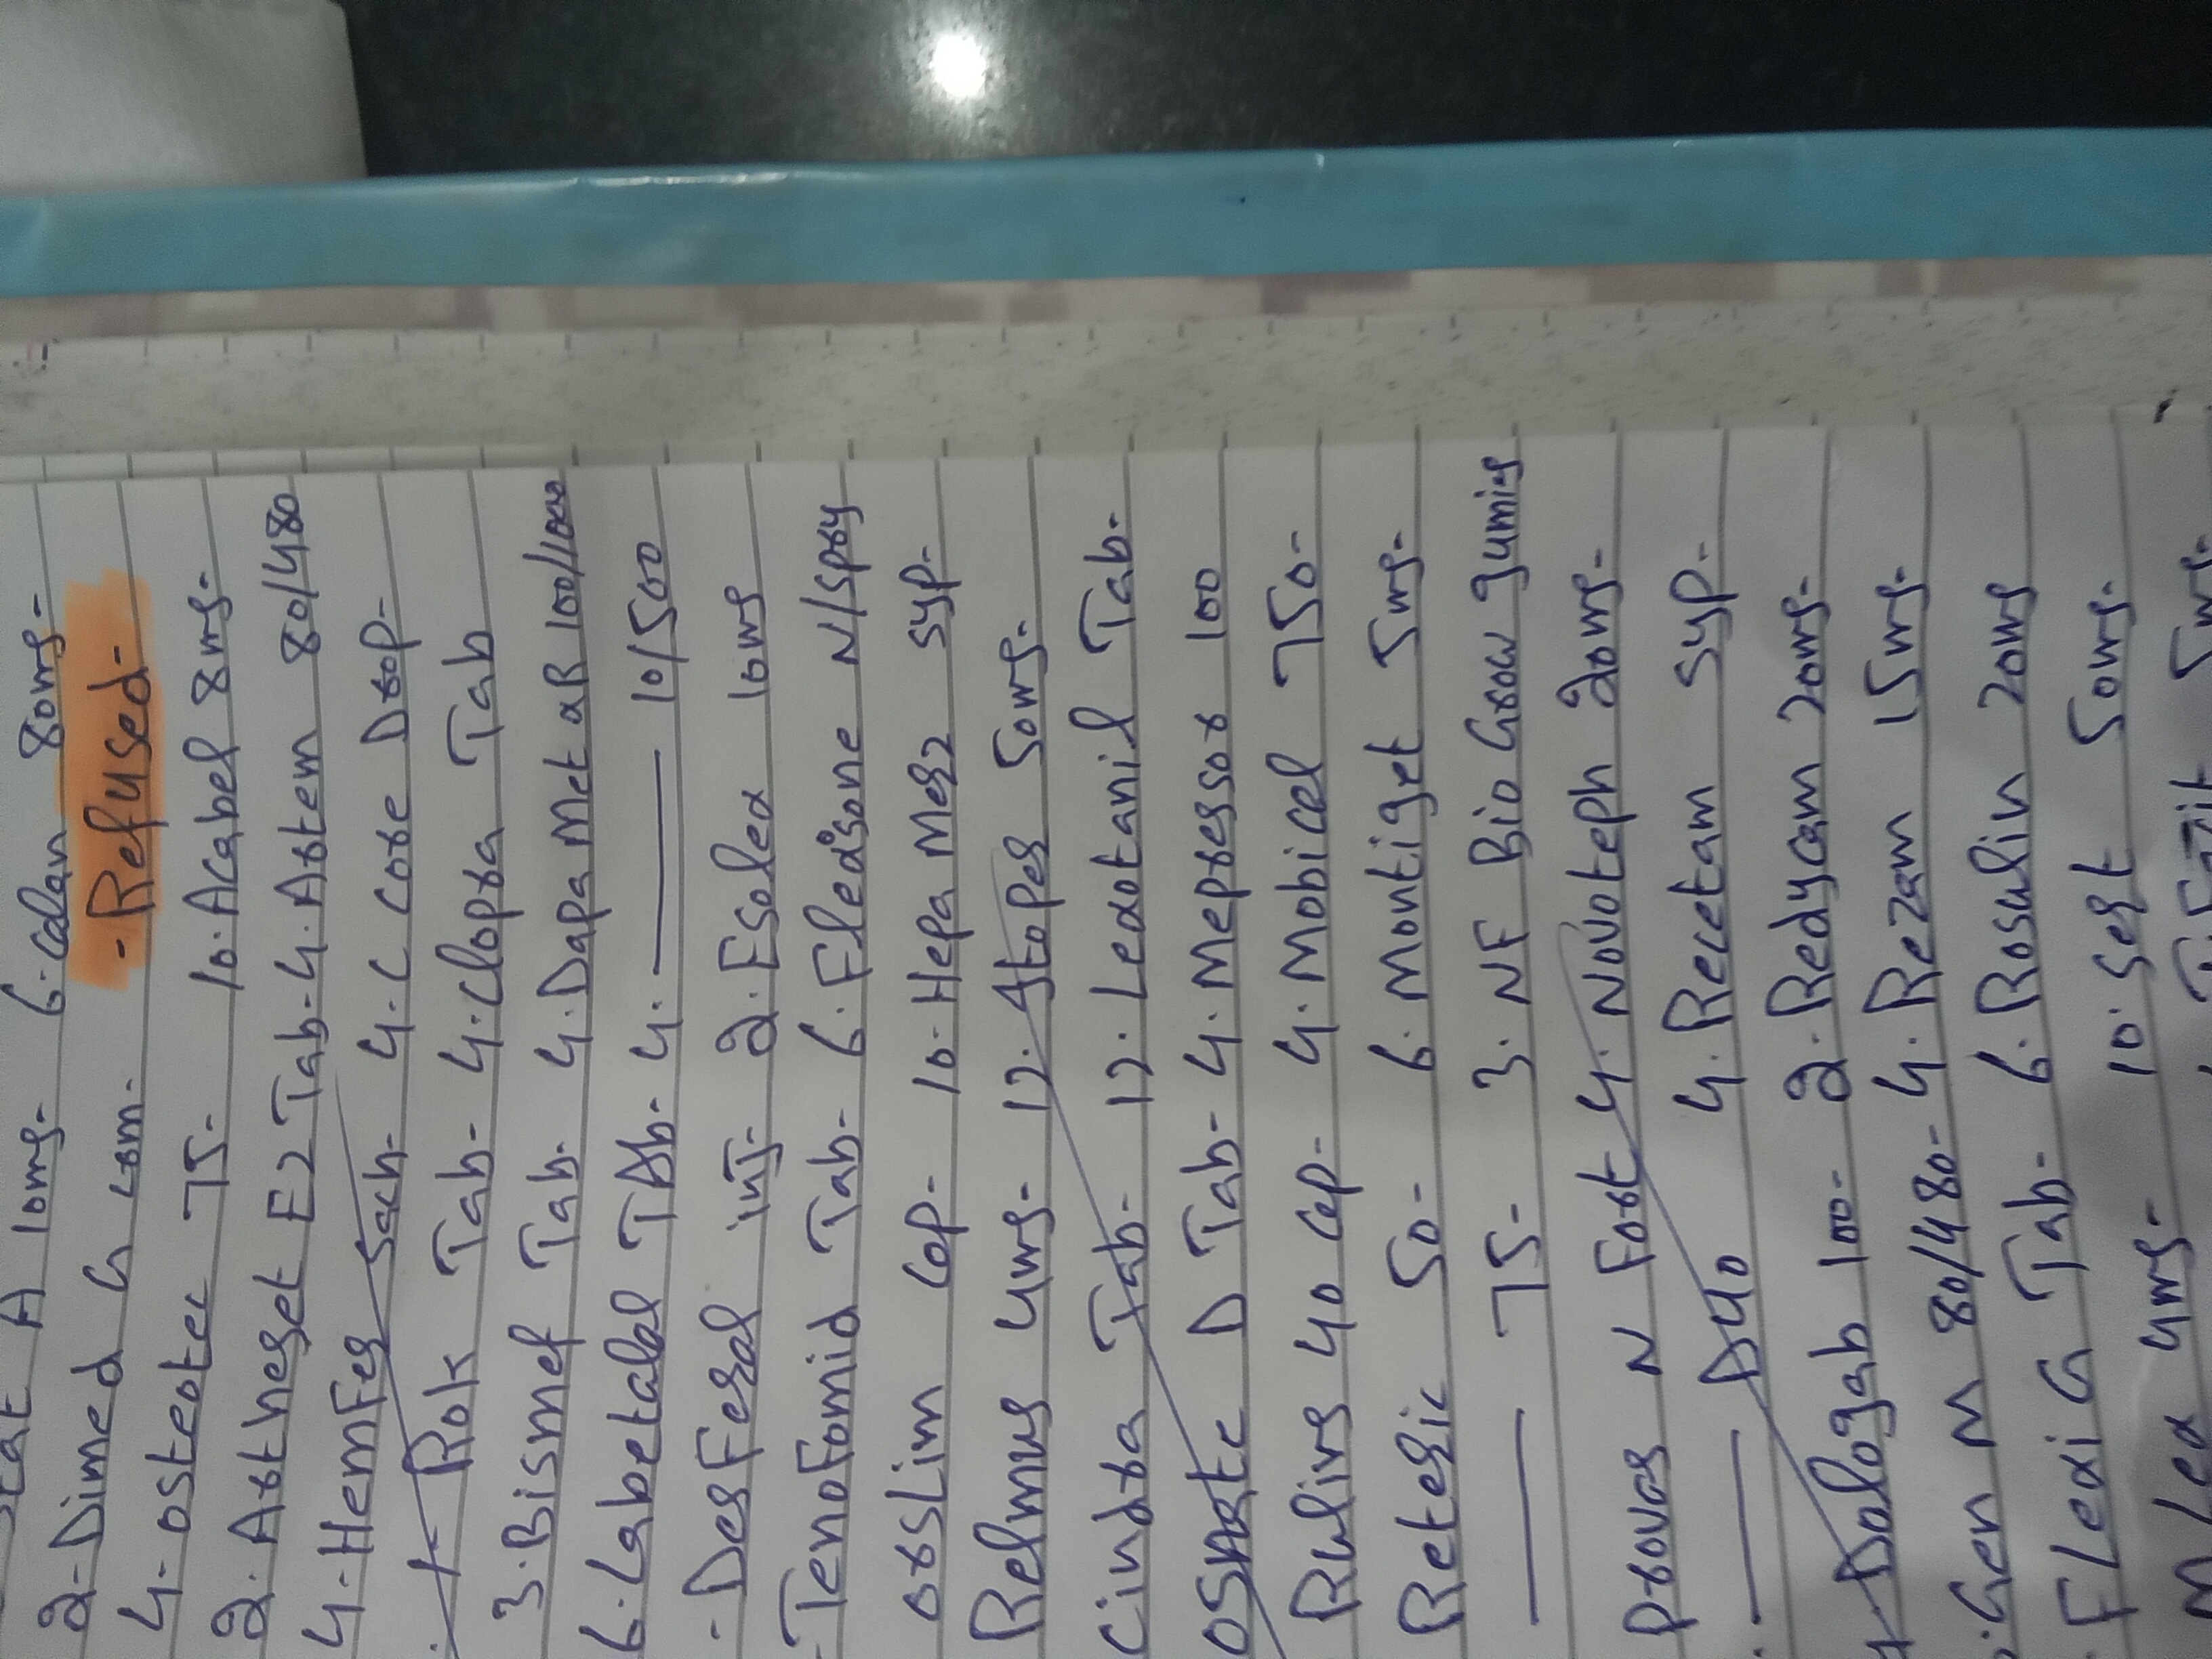 A 10mg- 6. Calan 80mg-
2- Dimed G com. - Refused -
4- Osteotec 75- 10. Acabel 8mg-
2. Artheget E2 Tab- 4. Artem 80/480
4- HemFer Sach- 4. C Core Drop-
Rolk Tab- 4. Clopra Tab
3. Bismef Tab- 4. Dapa Met XR 100/1000
6. Labetalol TAb- 4. —— 10/500
- DesFeral inj- 2. Esolex 10mg
- Tenofomid Tab- 6. Flexisone N/Spry
Orslim Cap- 10. Hepa Merz Syp-
Relmus 4mg- 12. 50mg-
Cindra Tab- 12. Lexotanil Tab-
Osnate D Tab- 4. Mepressor 100
Ruling 40 Cap- 4. Mobicel 750-
Reteric 50- 6. Montiget 5mg-
—— 75- 3. NF Bio Grow gumies
Provas N Fort 4. Novoteph 20mg-
—— D40 4. Recetam Syp-
Dologab 100- 2. Redycam 20mg-
Gen M 80/480- 4. Rezam 15mg-
Flexi G Tab- 6. Rosulin 20mg
4mg- 10. Sert 50mg-
5mg-